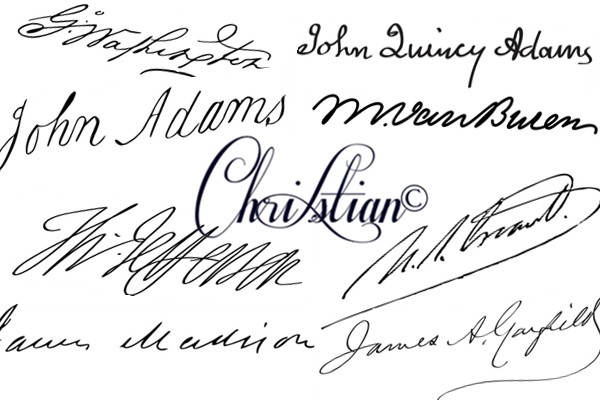 G. Washington
John Quincy Adams
John Adams
M. Van Buren
ChriStian©
Th. Jefferson
U. S. Grant
James Madison
James A. Garfield